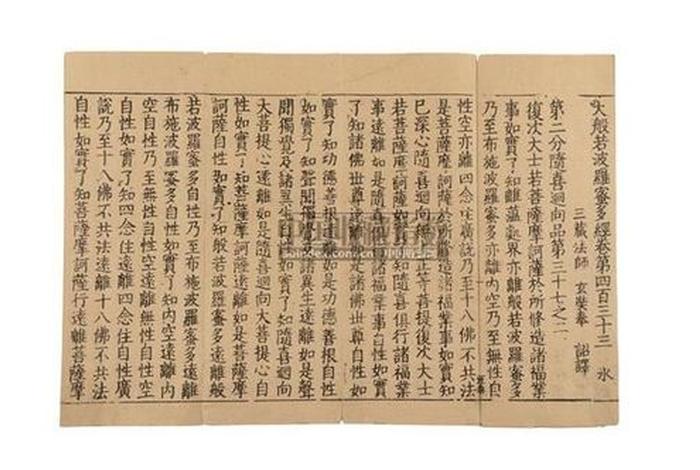 大般若波羅蜜多經卷第四百三十三 水
三藏法師 玄奘奉 詔譯
第二分隨喜迴向品第三十七之二
復次大士若菩薩摩訶薩於所修造諸福業
事如實了知離蘊處界亦離般若波羅蜜多
乃至布施波羅蜜多亦離內空乃至無性自
性空亦離四念住廣說乃至十八佛不共法
是菩薩摩訶薩於所修造諸福業事如實知
已深心隨喜迴向無上正等菩提復次大士
若菩薩摩訶薩如實了知隨喜俱行諸福業
事遠離如是隨喜俱行諸福業事自性如實
了知諸佛世尊遠離如是諸佛世尊自性如
實了知功德善根遠離如是功德善根自性
如實了知聲聞獨覺及諸異生遠離如是聲
聞獨覺及諸異生自性如實了知隨喜迴向
大菩提心遠離如是隨喜迴向大菩提心自
性如實了知菩薩摩訶薩遠離如是菩薩摩
訶薩自性如實了知般若波羅蜜多遠離般
若波羅蜜多自性乃至布施波羅蜜多遠離
布施波羅蜜多自性如實了知內空遠離內
空自性乃至無性自性空遠離無性自性空
自性如實了知四念住遠離四念住自性廣
說乃至十八佛不共法遠離十八佛不共法
自性如實了知菩薩摩訶薩行遠離菩薩摩